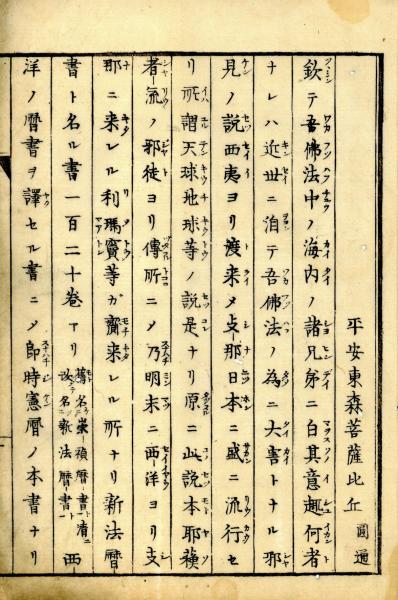 平安東森菩薩比丘 圓通
欽テ吾佛法中ノ海內ノ諸兄弟ニ白其意趣何者
ナレハ近世ニ洎テ吾佛法ノ為ニ大害トナル邪
見ノ說西夷ヨリ渡来メ支那日本ニ盛ニ流行セ
リ所謂天球地球等ノ說是ナリ原ニ此說本耶穌
者流ノ邪徒ヨリ傳所ニメ乃明末ニ西洋ヨリ支
那ニ来レル利瑪竇等ガ齎来レル所ナリ新法曆
書ト名ル書一百二十巻アリ 舊名ヲ崇禎曆書ト 清ニ改名ニ新法曆書ト 西
洋ノ曆書ヲ譯セル書ニメ即時憲曆ノ本書ナリ